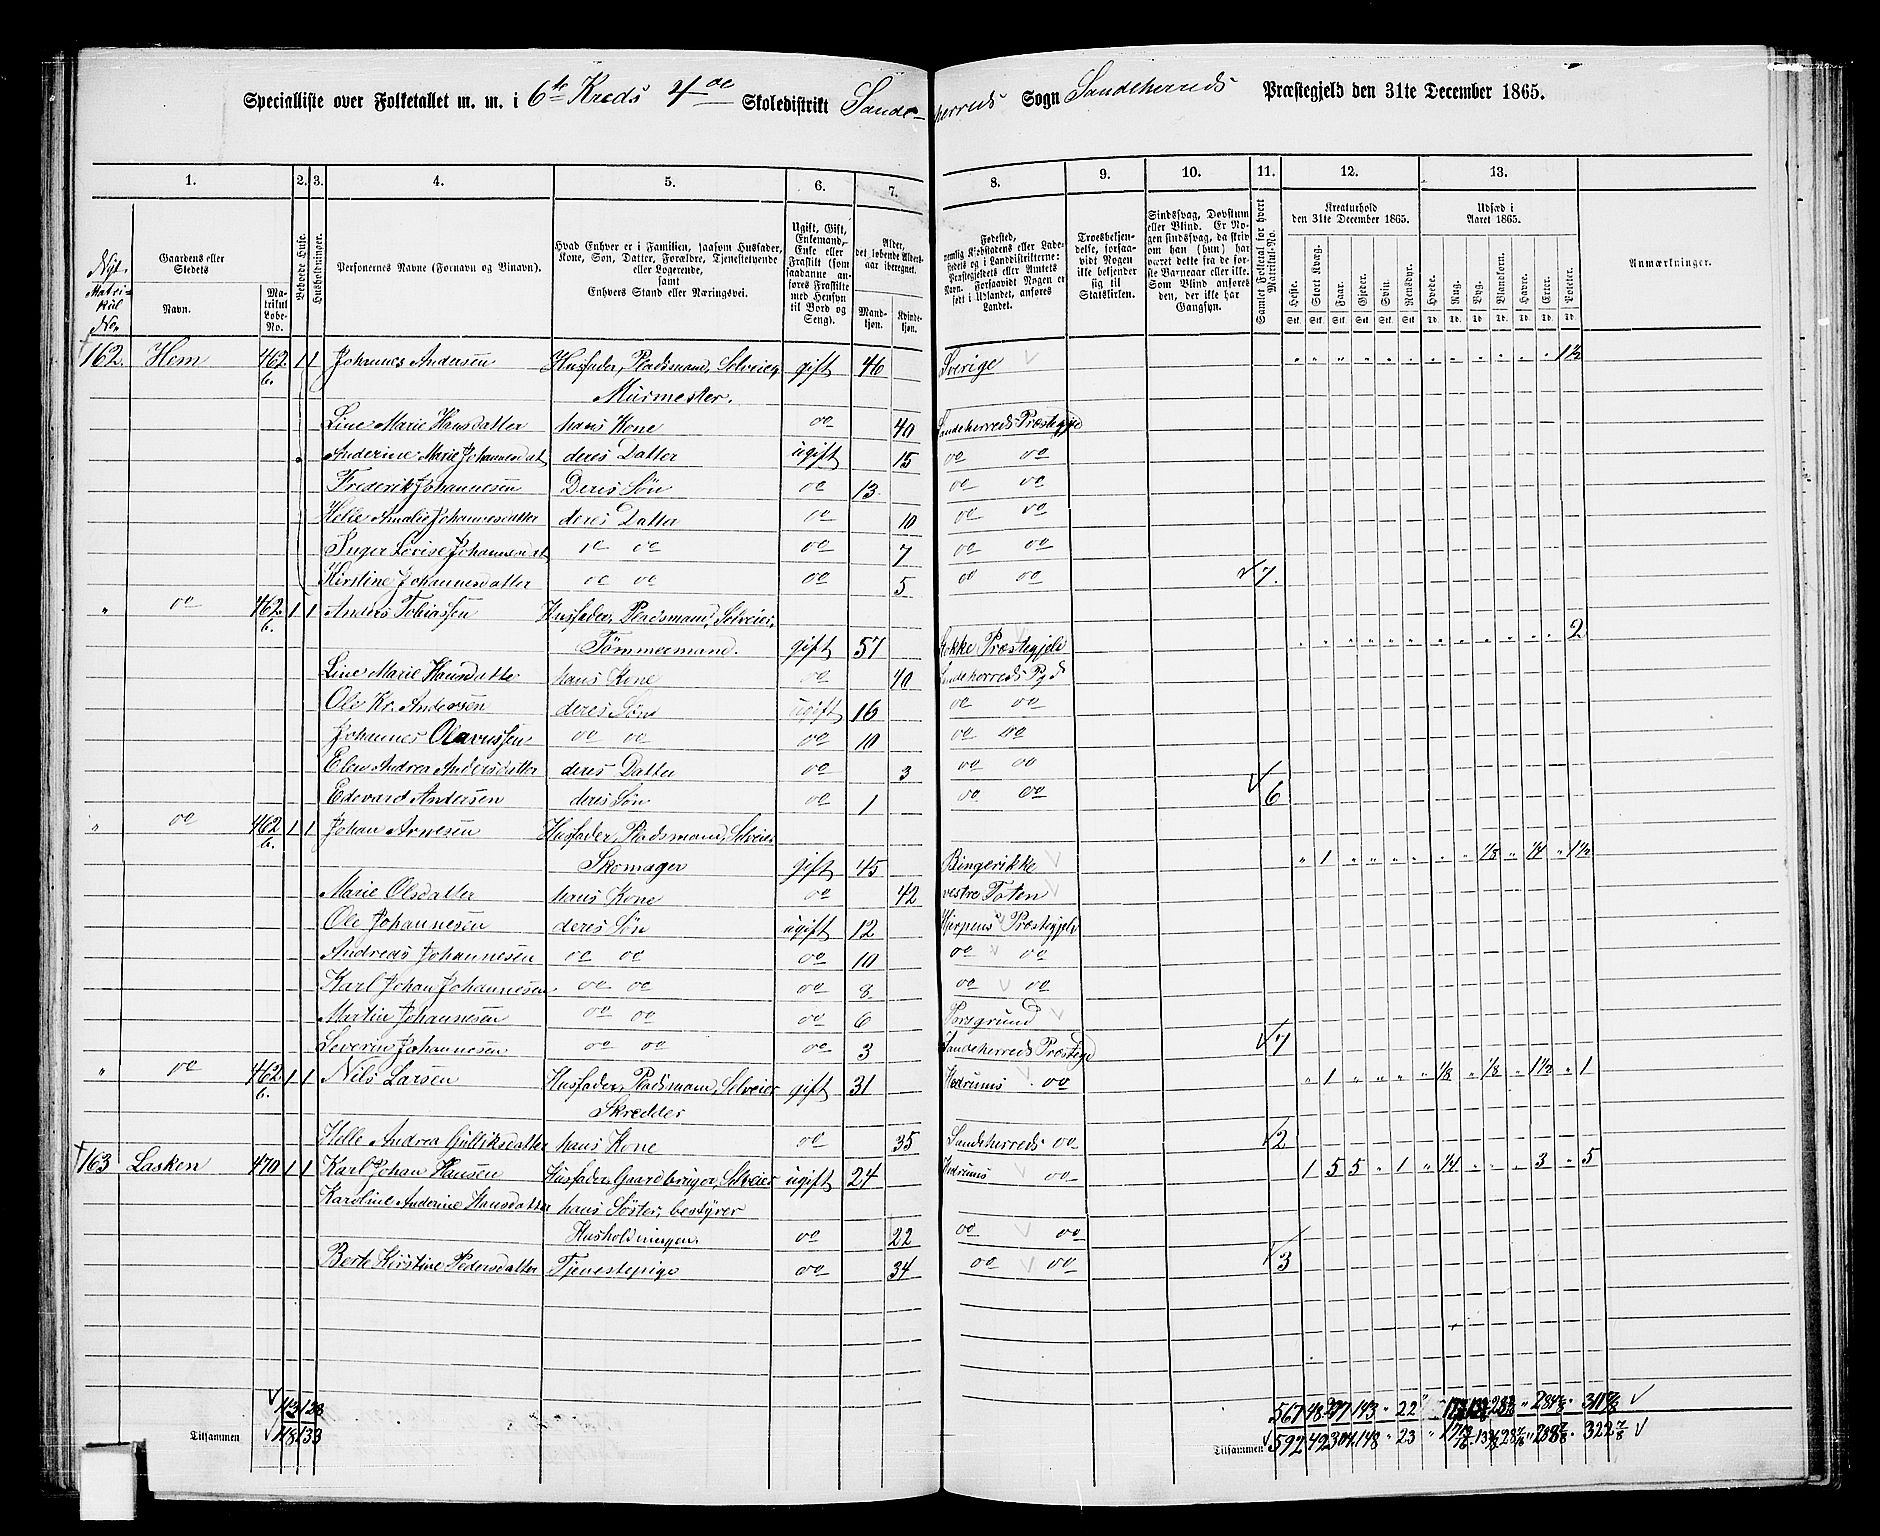 Specialliste over Folketallet m. m. i 6te Kreds 4de Skoledistrikt Sande-herreds Sogn Sandeherreds Præstegjeld den 31te December 1865.
1. 2. 3. 4. 5. 6. 7. 8. 9. 10. 11. 12. 13.
Nyt Matrikul No.
Gaardens eller Stedets
Navn.
Matrikul Løbe-No.
Beboede Huse.
Husholdninger.
Personernes Navne (Fornavn og Binavn).
Hvad Enhver er i Familien, saasom Husfader, Kone, Søn, Datter, Forældre, Tjenestetyende eller Logerende, samt Enhvers Stand eller Næringsvei.
Ugift, Gift, Enkemand, Enke eller Fraskilt (som saadanne anføres Fraskilte med Hensyn til Bord og Seng).
Alder, det løbende Alders-aar iberegnet.
Mandkjøn. Kvindekjøn.
Fødested,
Troesbekjendelse, forsaavidt Nogen ikke bekjender sig til Statskirken.
Sindssvag, Døvstum eller Blind. Er Nogen sindssvag, da skrives om han (hun) har været dette fra de første Barneaar eller ikke. Som Blind anføres den, der ikke har Gangsyn.
Samlet Folketal for hvert Matrikul-No.
Kreaturhold den 31te December 1865.
Heste. Stort Kvæg. Faar. Gjeder. Svin. Rensdyr.
Udsæd i Aaret 1865.
Hvede. Rug. Byg. Blandkorn. Havre. Erter. Poteter.
Anmærkninger.
162. Hem 462 b. 1 1 Johannes Andersen Husfader, Pladsmand, Selveier gift 46 Sverige " " " " " " " " " " " " 1½
Murmester.
Line Marie Hansdatter hans Kone do 40 Sandeherreds Præstegjed
Anderine Marie Johannesdat deres Datter ugift 15 do do
Frederik Johannesen Deres Søn do 13 do do
Helle Amalie Johannesdatter deres Datter do 10 do do
Inger Lovise Johannesdat do do do 7 do do
Kirstine Johannesdatter do do do 5 do do 7.
" do 462. b. 1 1 Anders Tobiassen Husfader, Pladsmand, Selveier,
Tømmermand. gift 57 Præstegjeld " " " " " " " " " " " " 2
Line Marie Hansdatte hans Kone do 40 Sandeherreds Pgd
Ole Kr. Andersen deres Søn ugift 16 do do
Johannes Olavussen do do do 10 do do
Elen Andrea Andersdatter deres Datter do 3 do do
Edevard Andersen deres Søn do 1 do do 6
" do 462 b. 1 1 Johan Arnesen Husfader, Pladsmand, Selveier
Skomager gift 45 Ringerikke " 1 " " " " " " ⅛ " ¼ " 1½
Marie Olsdatter hans Kone do 42 vestre Toten
Ole Johannesen deres Søn ugift 12 Gjerpens Præstegjeld
Andreas Johannesen do do do 10 do do
Karl Johan Johannesen do do do 8 do do
Martin Johannesen do do do 6 Porsgrund
Severin Johannesen do do do 3 Sandeherreds Præstegd 7
" do 462. b. 1 1 Nils Larsen Husfader, Pladsmand, Selveier gift 31 Hedrums do " 1 " " " " ⅛ " ⅛ " 1½ " 1
Skredder
Helle Andrea Gulliksdatter hans Kone do 35 Sandeherreds do 2
163 Lasken 470 1 1 Karl Johan Hansen Husfader, Gaardbruger, Selveier ugift 24 Hedrums do 1 5 5 " 1 " ¼ " " " 3 " 5
Karoline Anderine Hansdatter hans Søster, bestyrer
Husholdningen. do 22 do do
Berte Kirstine Pedersdatter Tjenestepige do 34 do do 3
113 128 567 48 297 143 " 22 "
Tilsammen 118 133 Tilsammen 592 49 304 148 " 23 " 322⅞